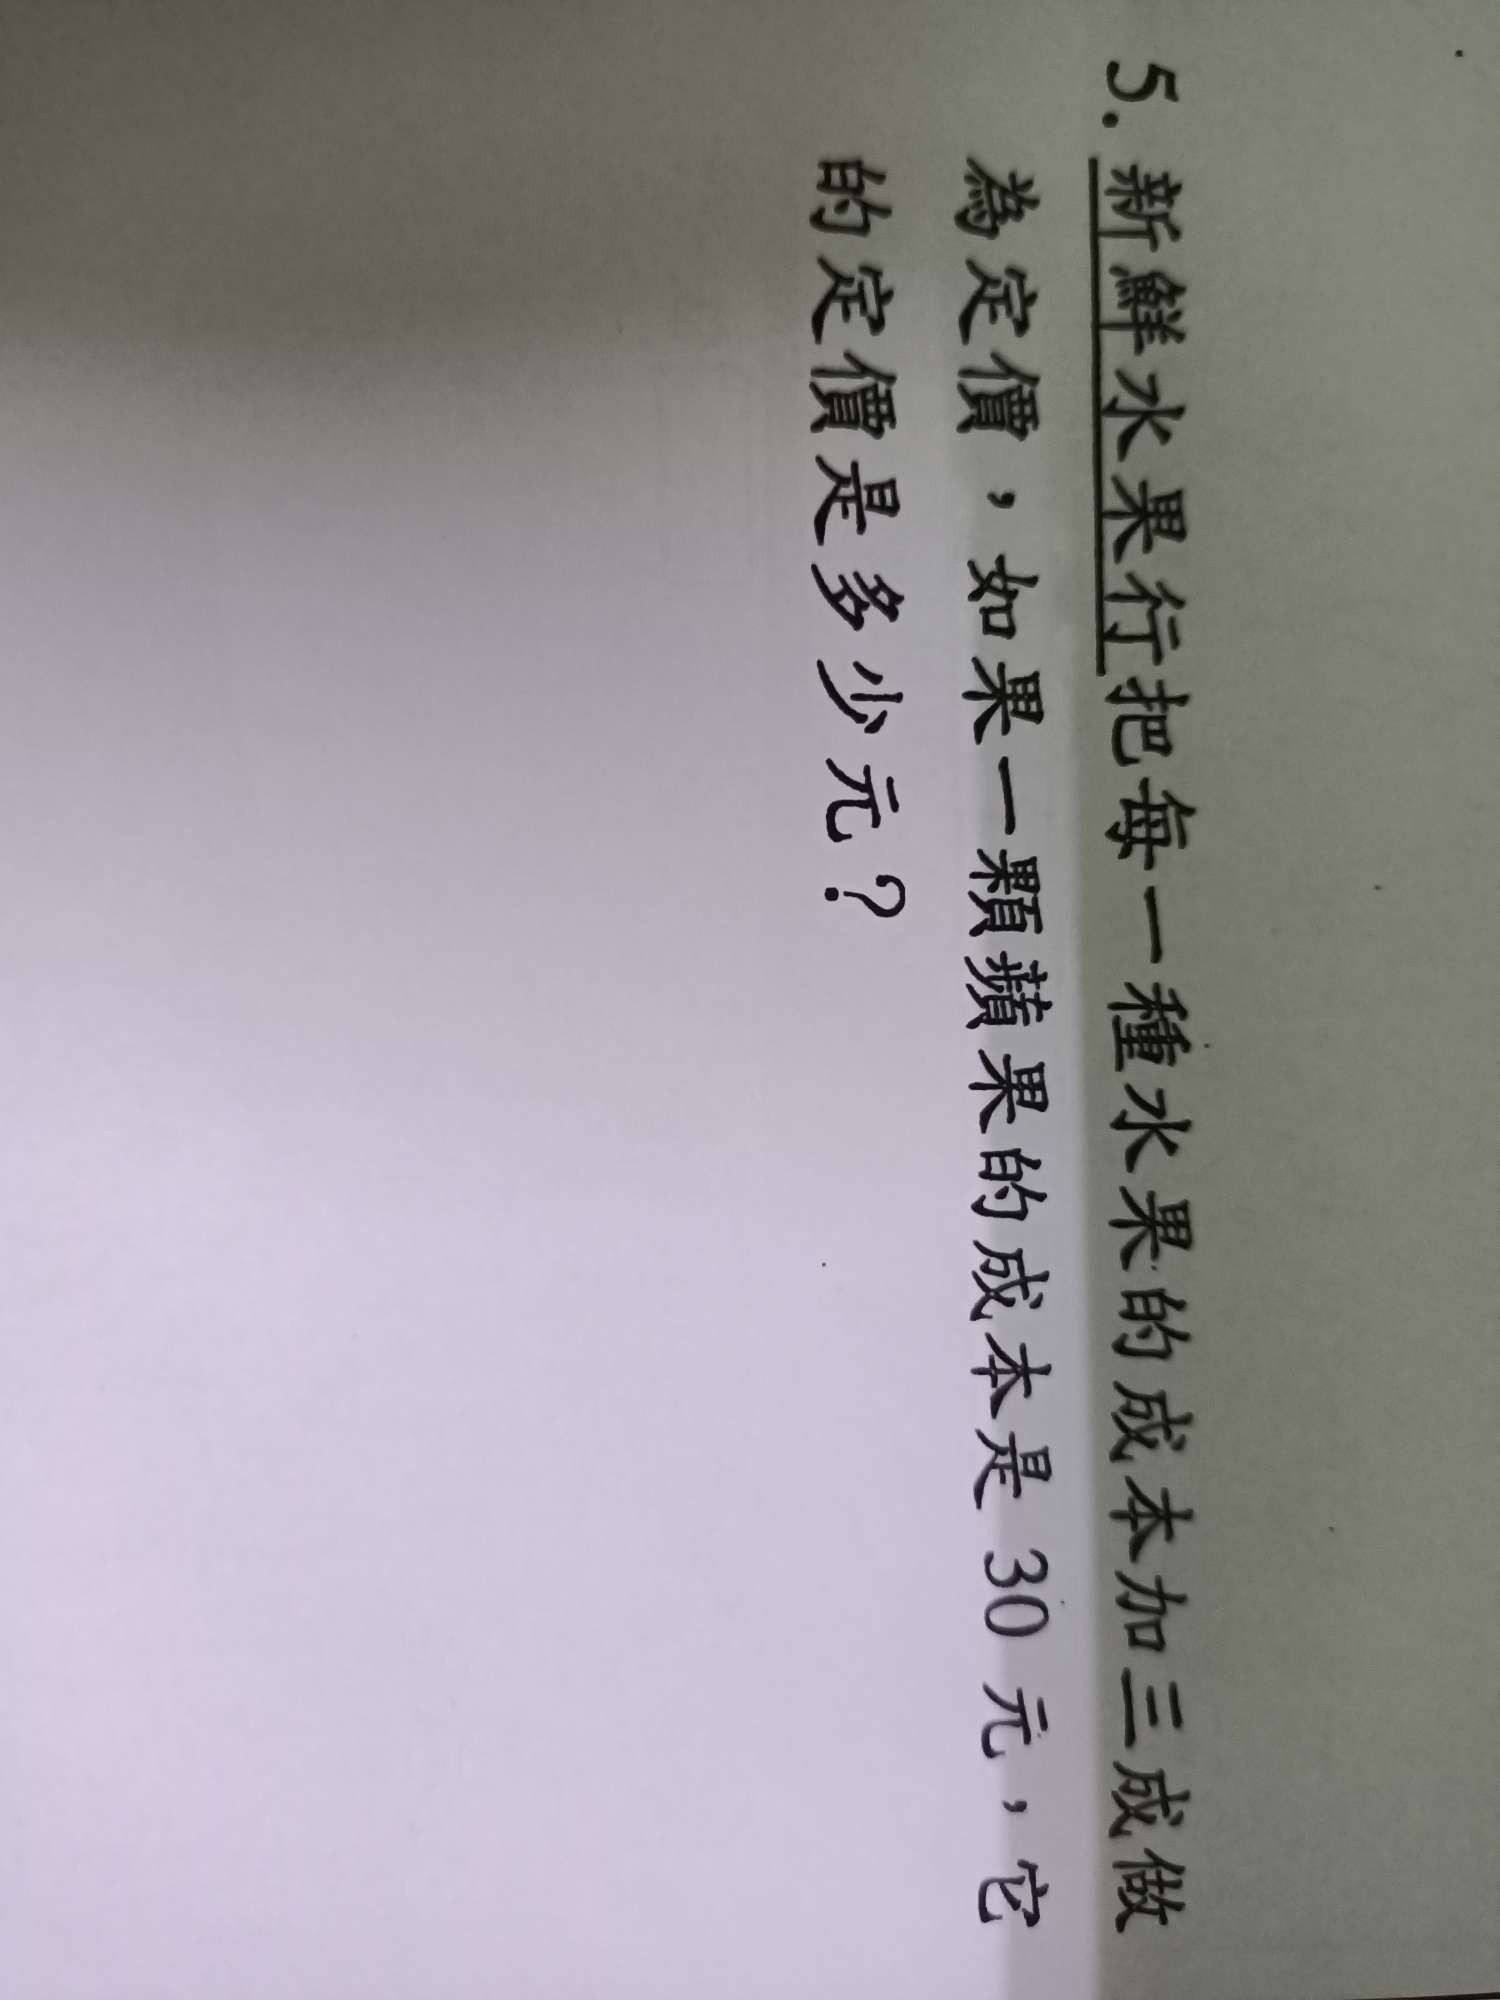 5. 新鮮水果行把每一種水果的成本加三成做
為定價，如果一顆蘋果的成本是 30 元，它
的定價是多少元？